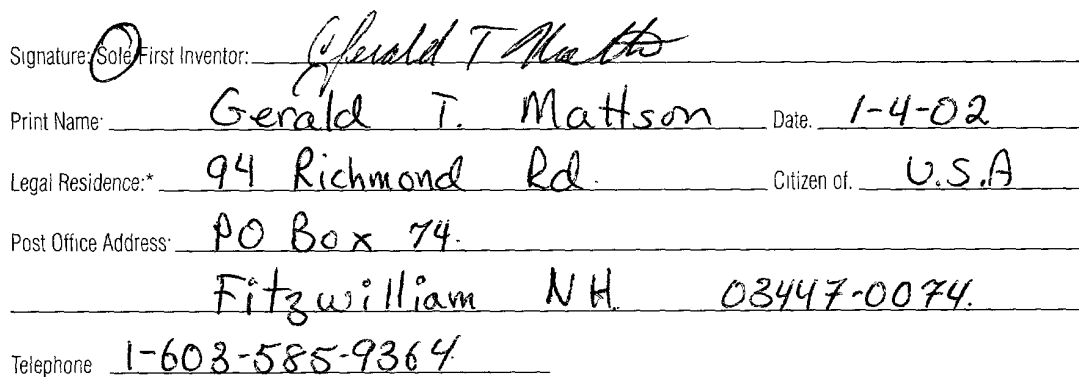 Signature: Sole/First Inventor: Gerald T Matts
Print Name: Gerald T. Mattson Date. 1-4-02
Legal Residence:* 94 Richmond Rd. Citizen of. U.S.A
Post Office Address: PO Box 74.
Fitzwilliam NH. 03447-0074.
Telephone 1-603-585-9364